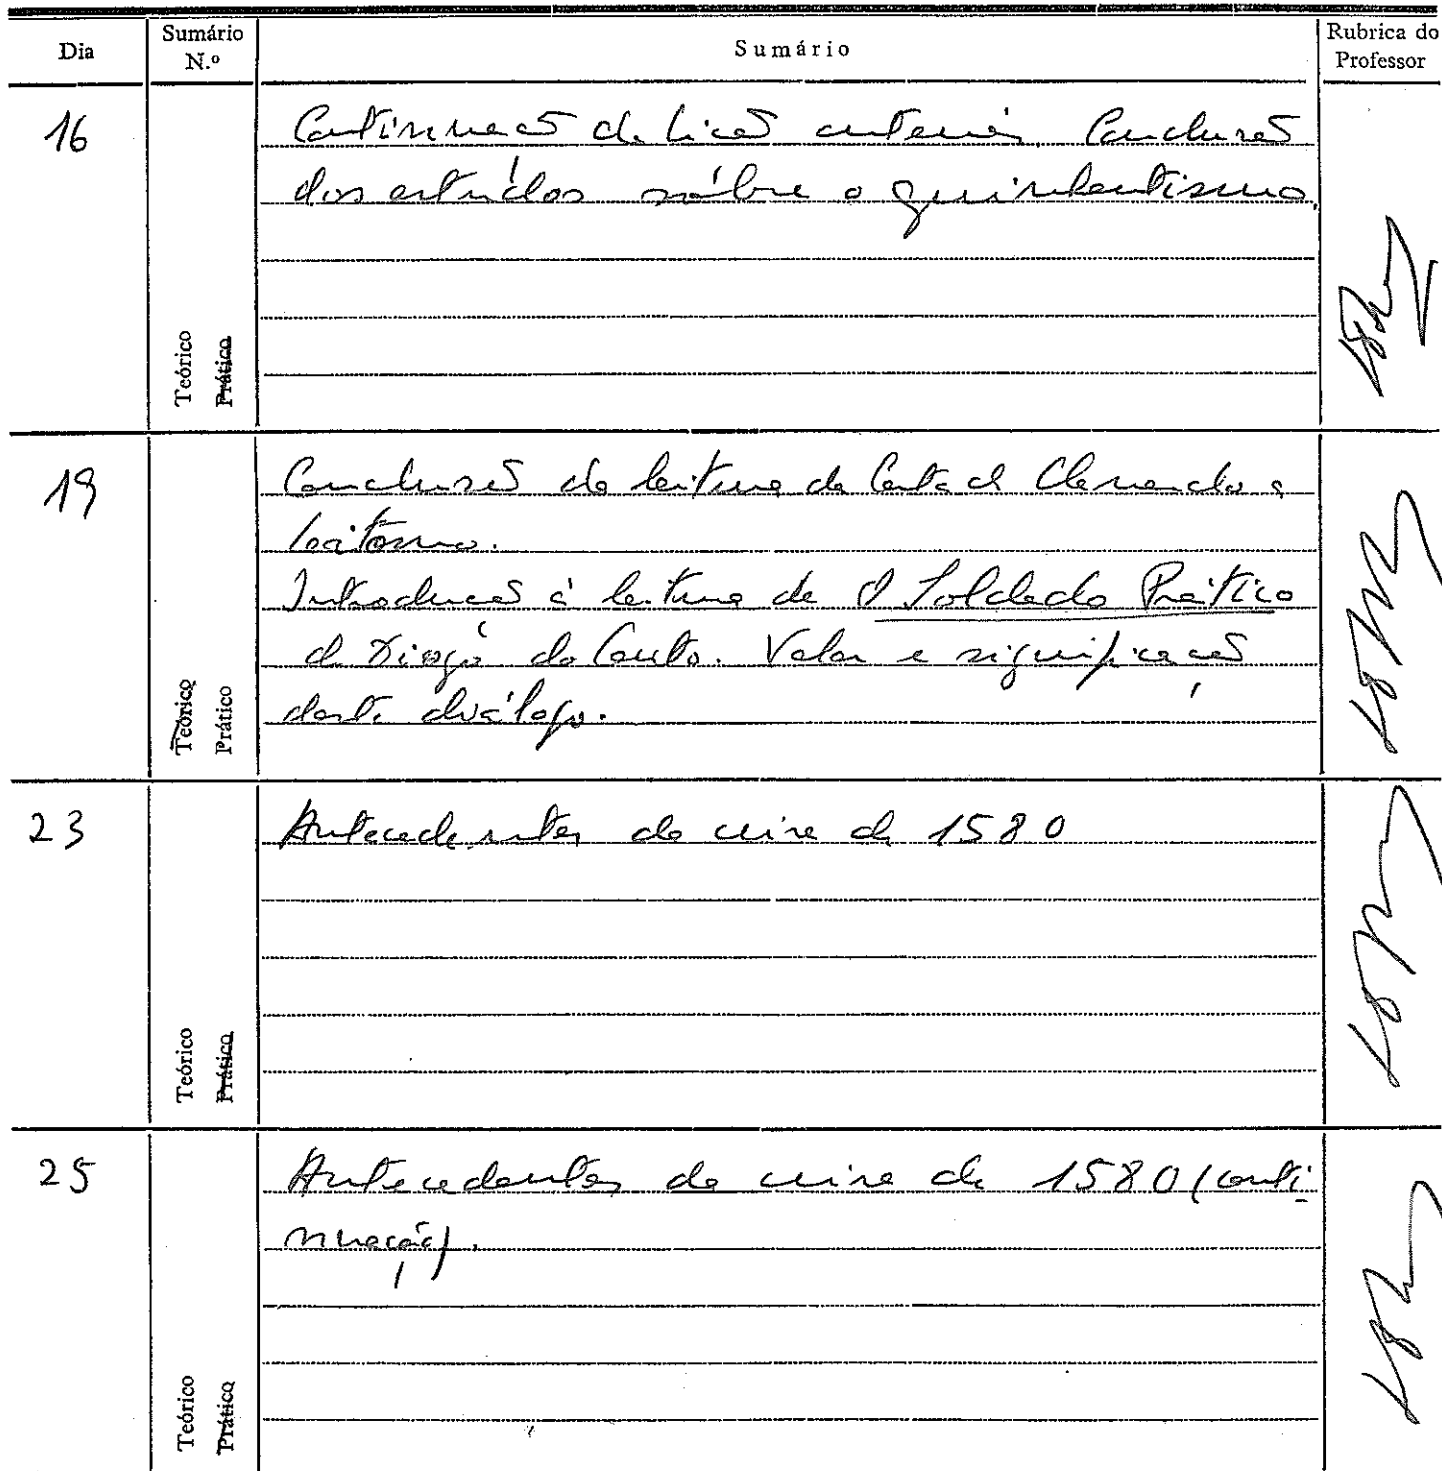 Dia Sumário N.º Sumário Rubrica do Professor
16 Continuação da lição anterior. Conclusão
dos estudos sôbre o quinhentismo.
Teórico Prático
19 Conclusão da leitura da Carta de Clenardo a
Latomo.
Introdução à leitura de O Soldado Prático
de Diogo do Couto. Valor e significação
deste diálogo.
Teórico Prático
23 Antecedentes da crise de 1580
Teórico Prático
25 Antecedentes da crise de 1580 (conti-
nuação).
Teórico Prático